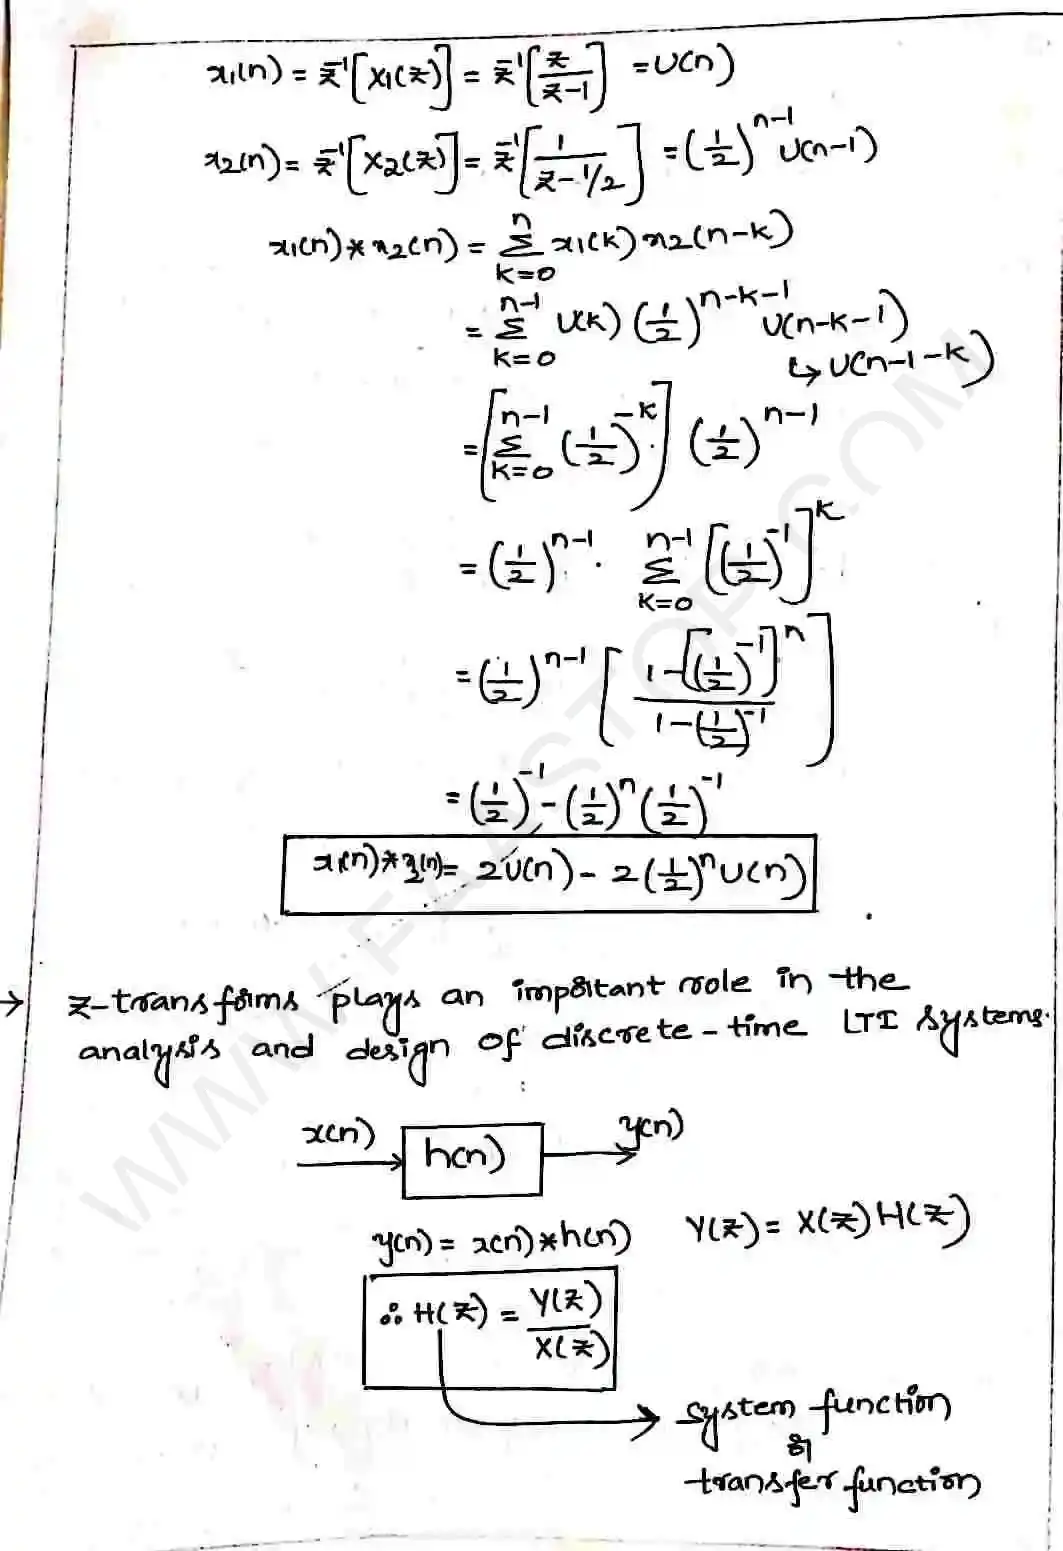 x₁(n) = z⁻¹[X₁(z)] = z⁻¹[z/(z-1)] = U(n)
x₂(n) = z⁻¹[X₂(z)] = z⁻¹[1/(z-1/2)] = (1/2)ⁿ⁻¹ U(n-1)
x₁(n) * x₂(n) = Σ_{k=0}^{n} x₁(k) x₂(n-k)
= Σ_{k=0}^{n-1} U(k) (1/2)^{n-k-1} U(n-k-1)
↳ U(n-1-k)
= [Σ_{k=0}^{n-1} (1/2)^{-k}] (1/2)^{n-1}
= (1/2)^{n-1} · Σ_{k=0}^{n-1} [(1/2)^{-1}]^k
= (1/2)^{n-1} [(1-[(1/2)^{-1}]^n)/(1-(1/2)^{-1})]
= (1/2)^{-1} - (1/2)^n (1/2)^{-1}
x₁(n) * x₂(n) = 2U(n) - 2(1/2)^n U(n)
→ z-transforms plays an important role in the
analysis and design of discrete-time LTI systems.
x(n) h(n) y(n)
y(n) = x(n) * h(n) Y(z) = X(z) H(z)
∴ H(z) = Y(z)/X(z)
→ system function
or
transfer function